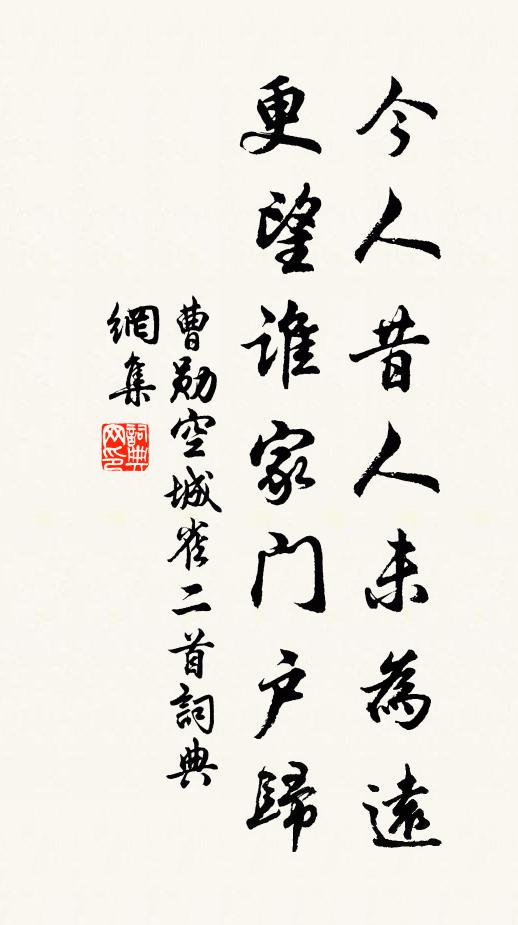 今人昔人未為遠
更望誰家門户歸
曹勛空城雀二首詞典
網集
詞典
网印